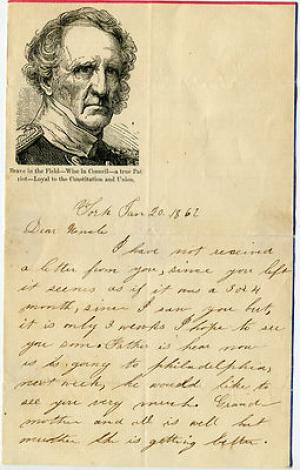 Brave in the Field—Wise in Council—a true Pat
riot—Loyal to the Constitution and Union.
York Jan 20. 1862
Dear Uncle
I have not received
a letter from you, since you left
it seems as if it was a 3 or 4
month, since I saw you but,
it is only 3 weeks I hope to see
you soon. Father is hear now
is going to philadelphia,
next week, he would like to
see you very much. Grand
mother and all is well but
mother she is getting better.